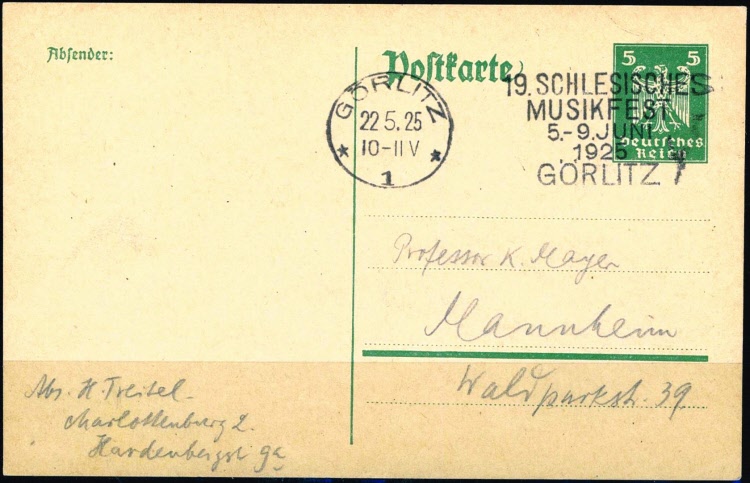 Absender:
Postkarte
5 5
Deutsches
Reich
GÖRLITZ
22.5.25
10-11 V
1
19. SCHLESISCHES
MUSIKFEST
5.-9. JUNI
1925
GÖRLITZ
Professor K. Mayer
Mannheim
Waldparkstr. 39
Abs. H. Treitel.
Charlottenburg 2.
Hardenbergst 9a